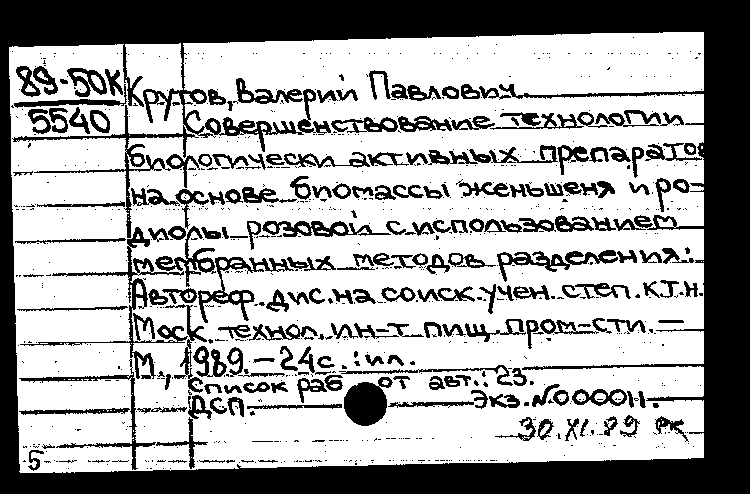 89-50К
5540
Крутов, Валерий Павлович.
Совершенствование технологии
биологически активных препаратов
на основе биомассы женьшеня и ро-
диолы розовой с использованием
мембранных методов разделения:
Автореф. дис. на соиск. учен. степ. к.т.н.
Моск. технол. ин-т пищ. пром-сти. —
М., 1989. — 24с.: ил.
Список раб от авт.: 23.
ДСП. Экз. №000011.
30.XI.89 РК
5